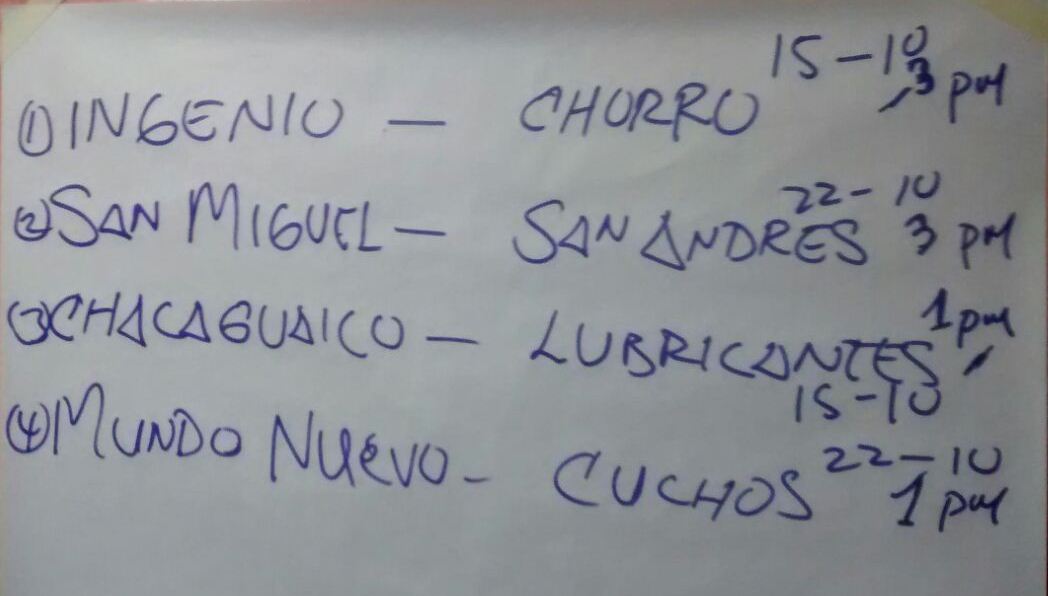 ① INGENIO - CHORRO 15-10
3 pm
② SAN MIGUEL - SAN ANDRES 22-10
3 pm
③ CHACAGUAICO - LUBRICANTES 1 pm
15-10
④ MUNDO NUEVO - CUCHOS 22-10
1 pm